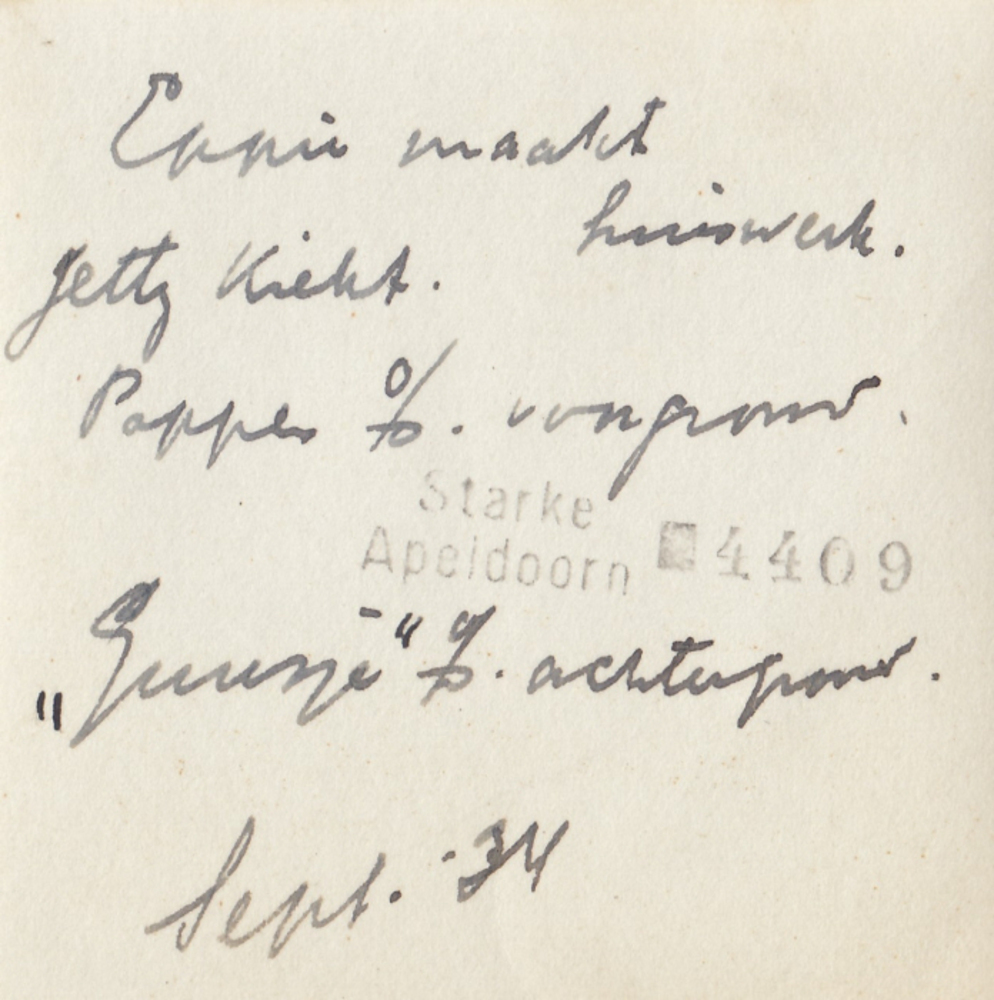 Eppie maakt
huiswerk.
Jetty kiekt.
Poppen o/d. voorgrond.
Starke
Apeldoorn 4409
„Guusje“ o/d. achtergrond.
Sept. '34